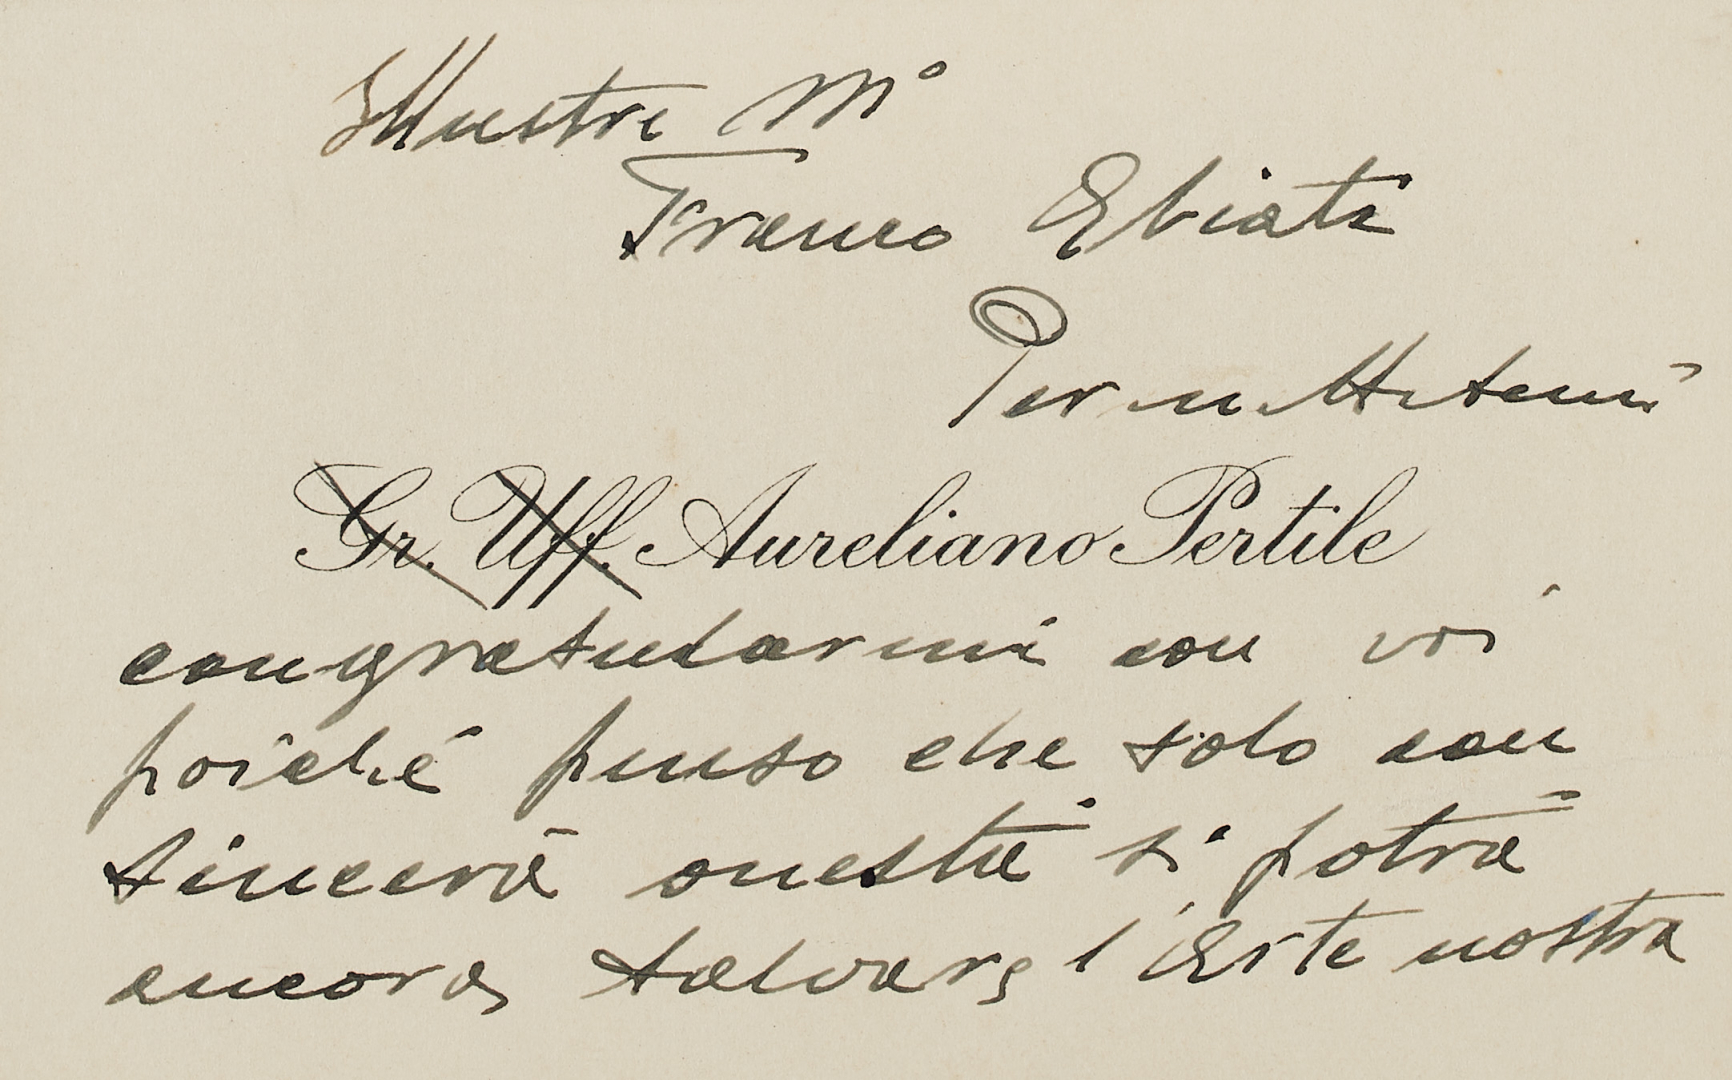 Illustre M°
Franco Abiati
Permettemi
Gr. Uff. Aureliano Pertile
congratularmi con voi
poiché penso che solo con
sincera onestà si potrà
ancora salvare l'Arte nostra